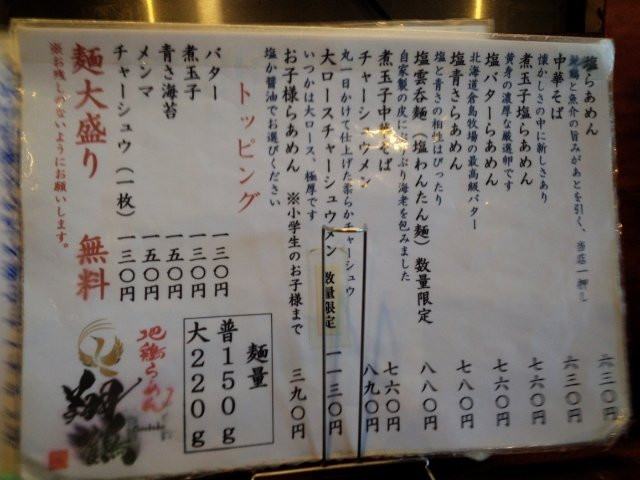 塩らあめん 六三〇円
地鶏と魚介の旨みがあとを引く、当店一押し
中華そば 六三〇円
懐かしさの中に新しさあり
煮玉子塩らあめん 七六〇円
黄身の濃厚な厳選卵です
塩バターらあめん 七六〇円
北海道倉島牧場の最高級バター
塩青さらあめん 七八〇円
塩と青さの相性はぴったり
塩雲呑麺(塩わんたん麺)数量限定 八八〇円
自家製の皮にぷり海老を包みました
煮玉子中華そば 七六〇円
チャーシュウメン 八九〇円
丸一日かけて仕上げた柔らかチャーシュウ
大ロースチャーシュウメン 数量限定 一一三〇円
いつかは大ロース、極厚です
お子様らあめん ※小学生のお子様まで 三九〇円
塩か醤油でお選びください
トッピング
バター 一三〇円
煮玉子 一三〇円
青さ海苔 一五〇円
メンマ 一五〇円
チャーシュウ(一枚) 一三〇円
麺大盛り 無料
※お残しのないようにお願いします。
麺量
普150g
大220g
地鶏らあめん
翔鶴